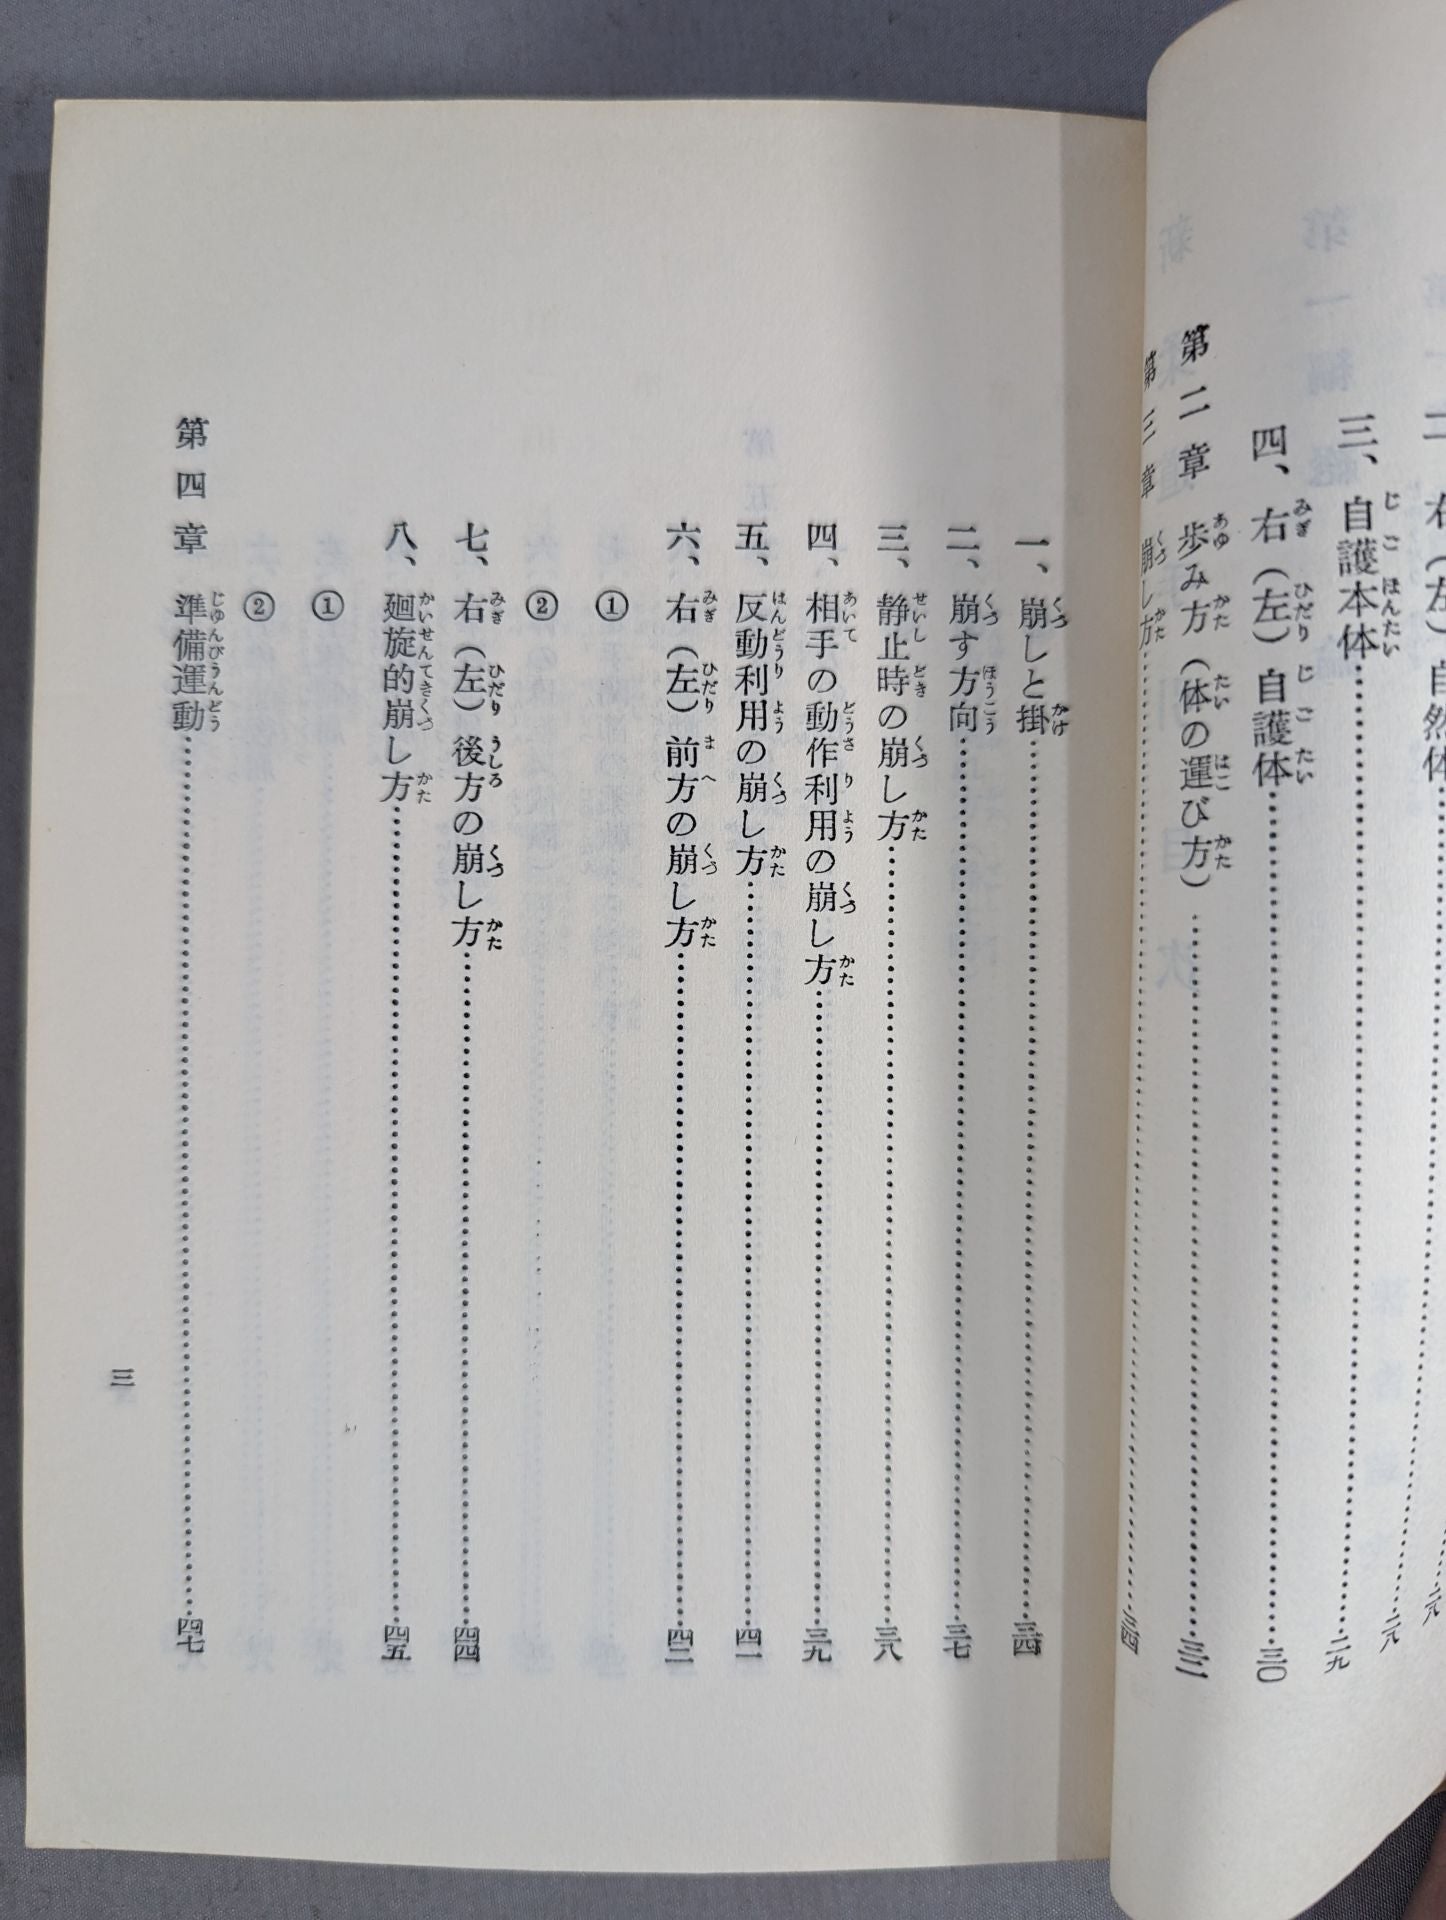 三、自護本体……二九
四、右(左)自護体……三〇
第二章 歩み方(体の運び方)……三二
第三章 崩し方……三四
一、崩しと掛……三四
二、崩す方向……三七
三、静止時の崩し方……三八
四、相手の動作利用の崩し方……三九
五、反動利用の崩し方……四一
六、右(左)前方の崩し方……四二
①
②
七、右(左)後方の崩し方……四四
八、廻旋的崩し方……四五
①
②
第四章 準備運動……四七
三